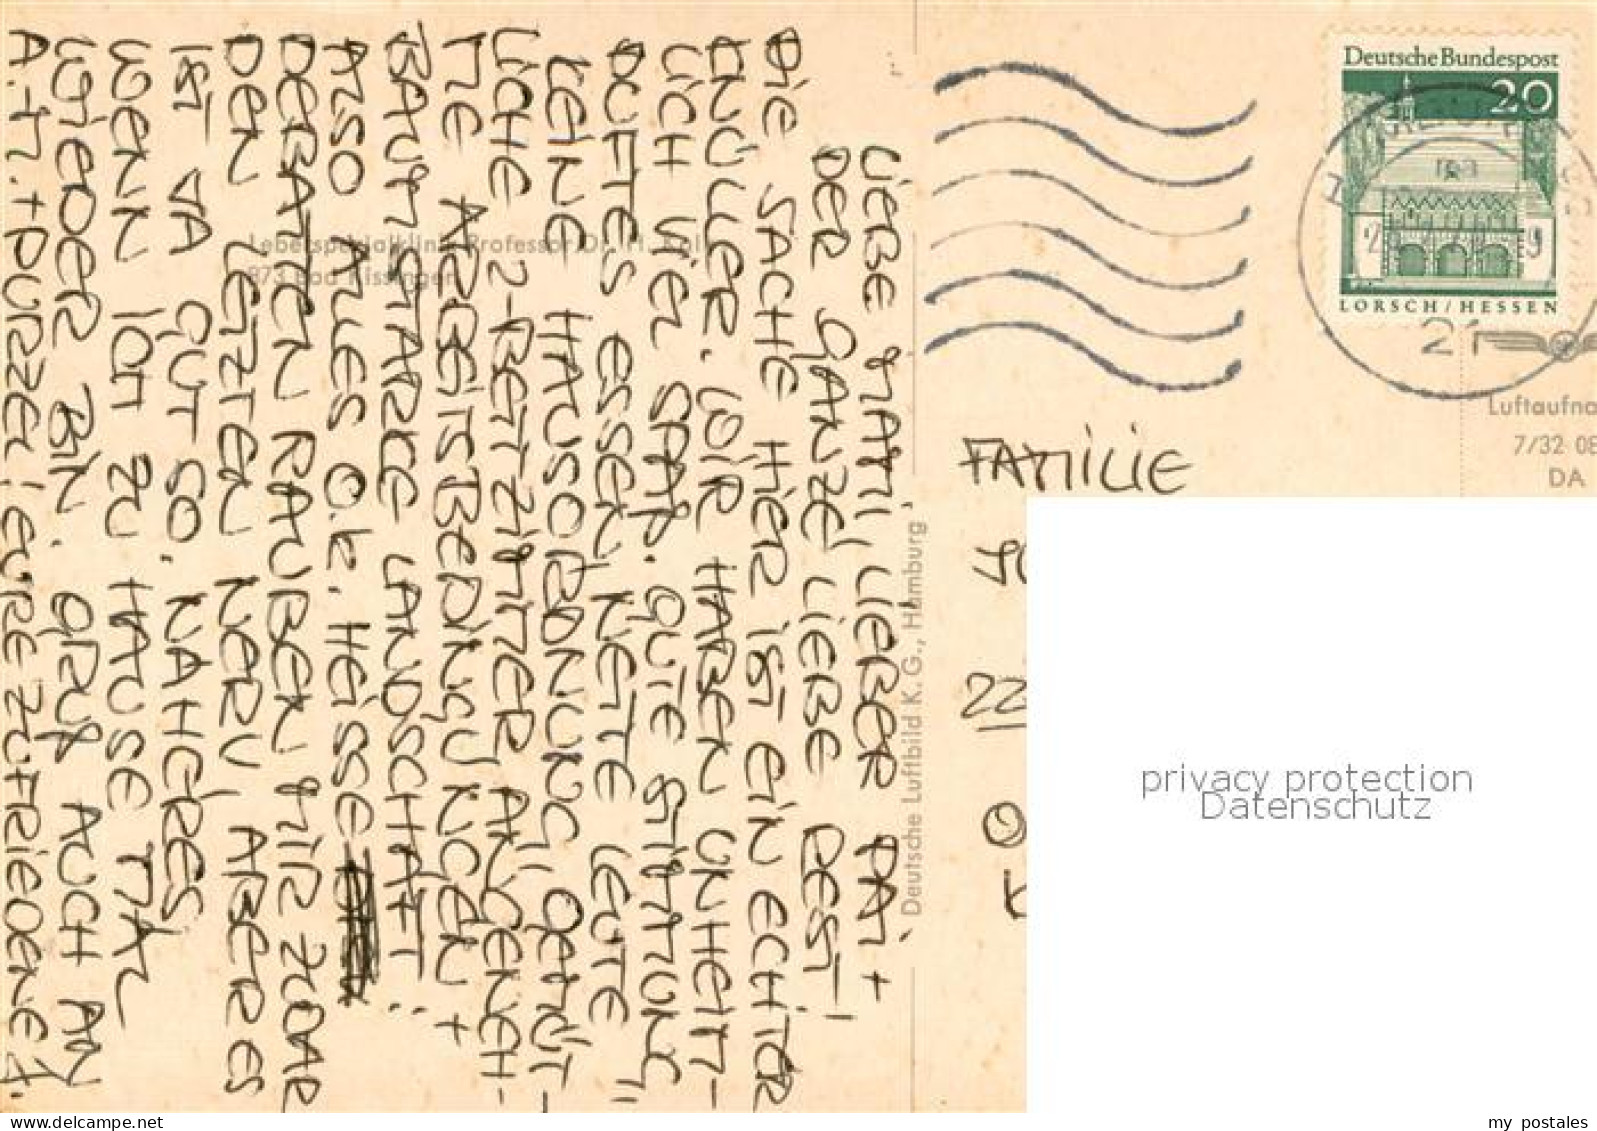 LIEBE MAMI, LIEBER PAPI +
DER GANZE LIEBE REST!
DIE SACHE HIER IST EIN ECHTER
KNÜLLER. WIR HABEN UNHEIM-
LICH VIEL SPAß. GUTE STIMMUNG,
DUFTES ESSEN, NETTE LEUTE
KEINE HAUSORDNUNG, GEMÜT-
LICHE 2-BETTZIMMER, ANGENEH-
ME ARBEITSBEDINGUNGEN +
BAUMSTARKE LANDSCHAFT.
ALSO ALLES O.K. HEISSE
DEBATTEN RAUBEN MIR ZWAR
DEN LETZTEN NERV, ABER ES
IST JA GUT SO. NÄHERES
WENN ICH ZU HAUSE MAL
WIEDER BIN. GRUß AUCH AN
A.-M. + PURZEL! EURE ZUFRIEDENE
Leberspezialklinik Professor Dr. H.
873 Bad Kissingen
Deutsche Luftbild K. G., Hamburg
Deutsche Bundespost
20
LORSCH/HESSEN
21
Luftaufna
7/32 08
DA
FAMILIE
22
privacy protection
Datenschutz
delcampe.net
my_postales